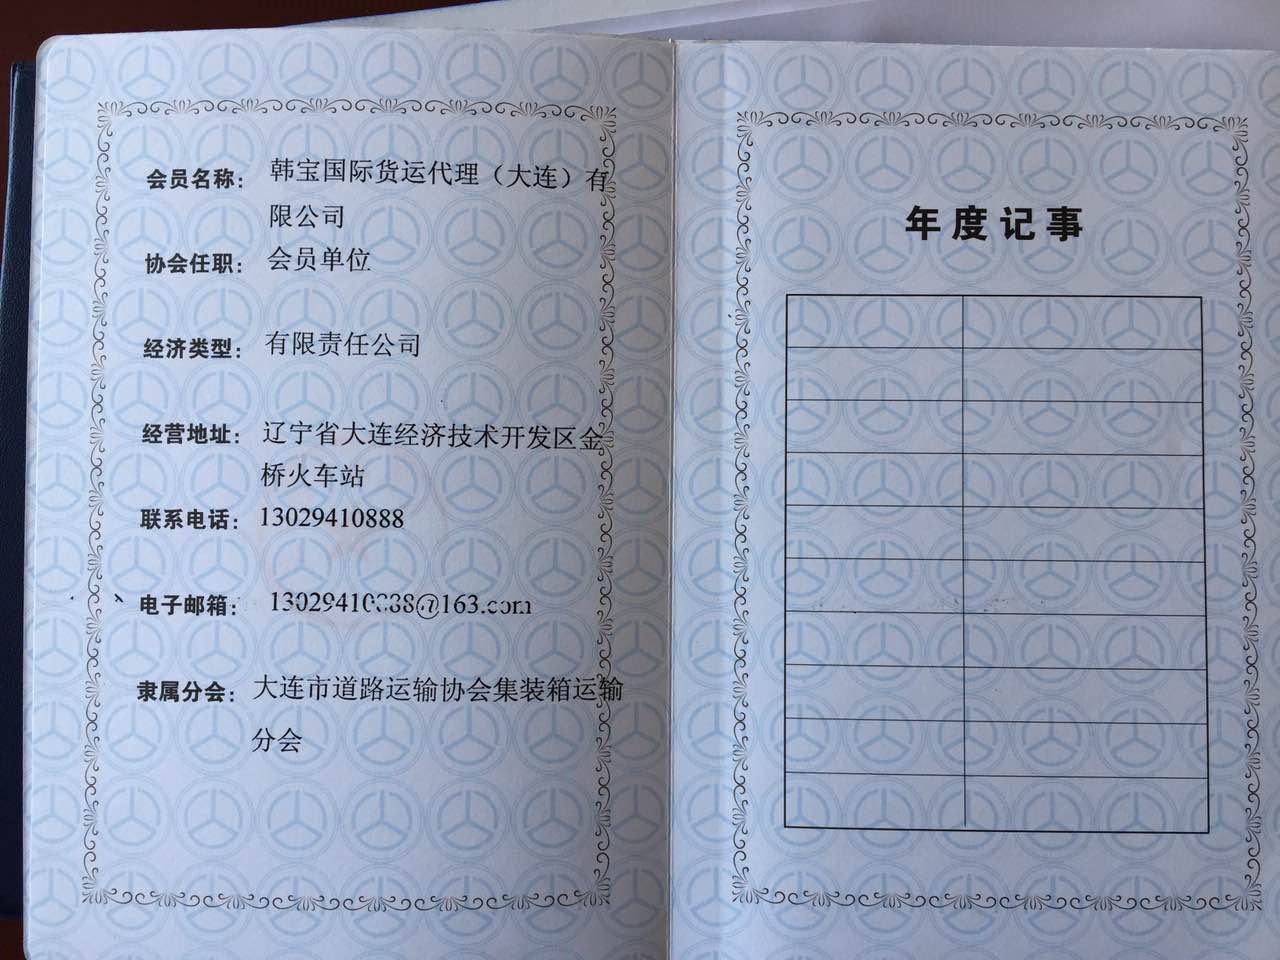 会员名称: 韩宝国际货运代理（大连）有
限公司
协会任职: 会员单位
经济类型: 有限责任公司
经营地址: 辽宁省大连经济技术开发区金
桥火车站
联系电话: 13029410888
电子邮箱: 13029410888@163.com
隶属分会: 大连市道路运输协会集装箱运输
分会
年度记事